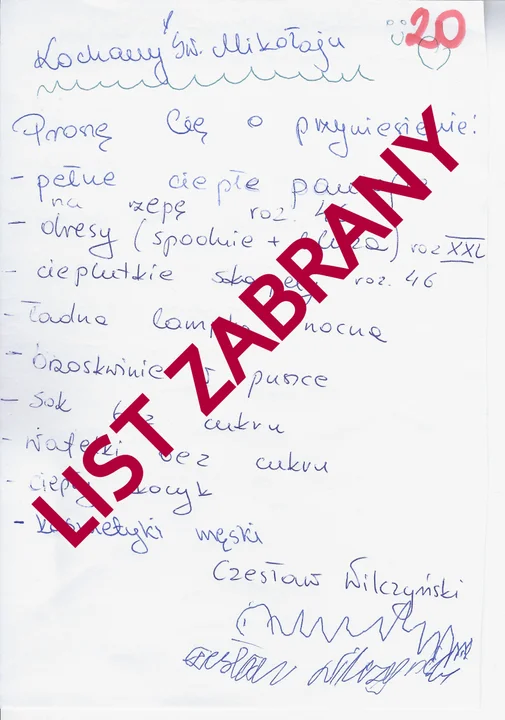 Kochany Św. Mikołaju
20
Proszę Cię o przyniesienie:
- pełne ciepłe
na rzepę roz. 46
- dresy (spodnie + bluza) roz XXL
- cieplutkie roz. 46
- ładna lampka nocna
- brzoskwinie w puszce
- sok bez cukru
- wafelki bez cukru
- ciepły kocyk
- kosmetyki męski
Czesław Wilczyński
Czesław Wilczyński
LIST ZABRANY